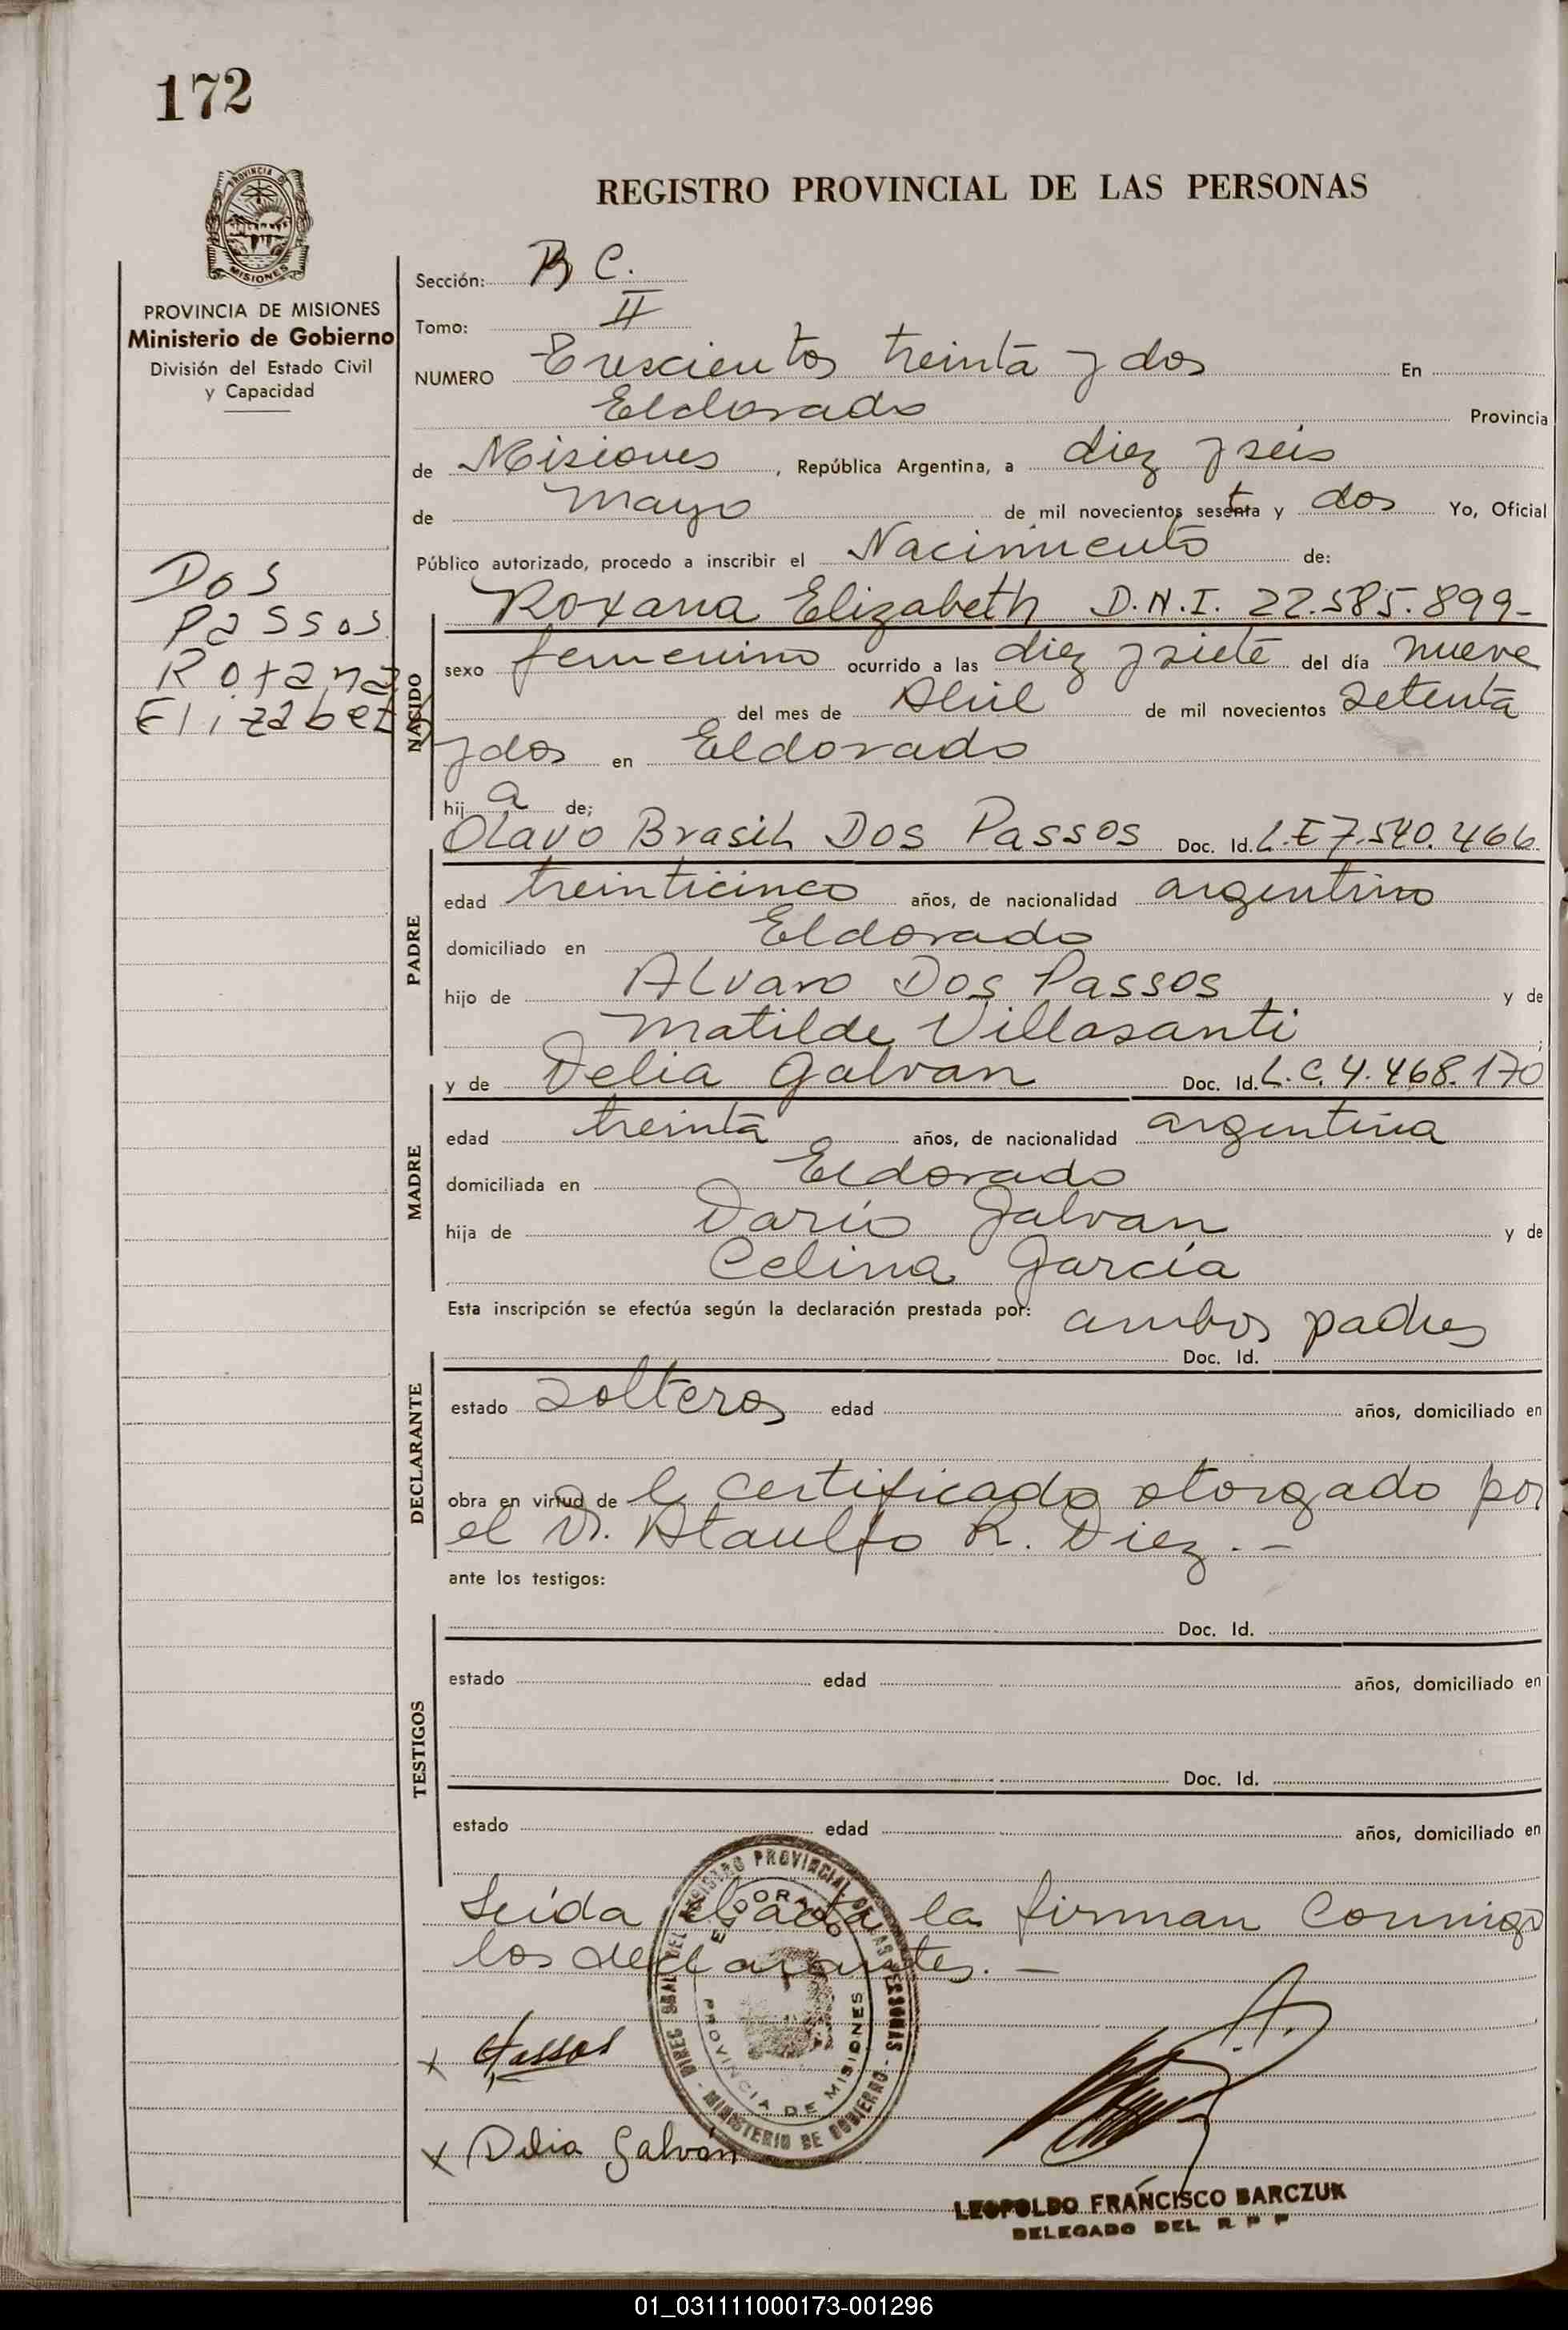 172
REGISTRO PROVINCIAL DE LAS PERSONAS
PROVINCIA DE MISIONES
Ministerio de Gobierno
División del Estado Civil
y Capacidad
Dos
Passos
Roxana
Elizabeth
Sección: B C.
Tomo: II
NUMERO Trescientos treinta y dos En
Eldorado Provincia
de Misiones, República Argentina, a diez y seis
de Mayo de mil novecientos setenta y dos Yo, Oficial
Público autorizado, procedo a inscribir el Nacimiento de:
NACIDO
Roxana Elizabeth D.N.I. 22.585.899-
sexo femenino ocurrido a las diez y siete del día nueve
del mes de Abril de mil novecientos setenta
y dos en Eldorado
hij a de;
PADRE
Olavo Brasil Dos Passos Doc. Id. L.E 7.540.466
edad treinticinco años, de nacionalidad argentino
domiciliado en Eldorado
hijo de Alvaro Dos Passos y de
Matilde Villasanti ;
MADRE
y de Delia Galvan Doc. Id. L.C. 4.468.170
edad treinta años, de nacionalidad argentina
domiciliada en Eldorado
hija de Darío Galvan y de
Celina García
Esta inscripción se efectúa según la declaración prestada por: ambos padres
DECLARANTE
Doc. Id.
estado solteros edad años, domiciliado en
obra en virtud de l certificado otorgado por
el Dr. Ataulfo R. Diez.-
ante los testigos:
TESTIGOS
Doc. Id.
estado edad años, domiciliado en
Doc. Id.
estado edad años, domiciliado en
Leída el acta la firman conmigo
los declarantes.-
DIREC. GRAL. DEL REGISTRO PROVINCIAL DE LAS PERSONAS - MINISTERIO DE GOBIERNO -
ELDORADO
PROVINCIA DE MISIONES
x Passos
x Delia Galván
LEOPOLDO FRANCISCO BARCZUK
DELEGADO DEL R P P
01_031111000173-001296